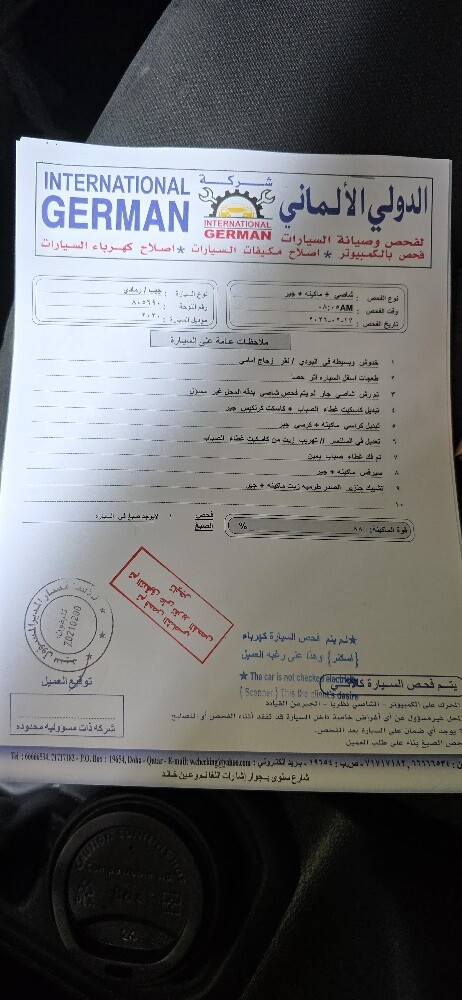 INTERNATIONAL
GERMAN
شركة
INTERNATIONAL
GERMAN
الدولي الألماني
لفحص وصيانة السيارات
فحص بالكمبيوتر * اصلاح مكيفات السيارات * اصلاح كهرباء السيارات
نوع الفحص : شاصي + ماكينه + جير
وقت الفحص : ٠٨:٠٥AM
تاريخ الفحص : ١٧-٠٢-٢٠٢٦
نوع السيارة : جيب / رمادي
رقم اللوحة : ٨٠٥٦٩٠
موديل السيارة : ٢٠٢٠
ملاحظات عامة على السيارة
١ خدوش وبسيطه في البودي / نقر زجاج امامي
٢ طعجات اسفل السياره اثر حصـ
٣ تم رش شاصي جار لم يتم فحص شاصي بدقه المحل غير مسؤل
٤ تبديل كاسكيت غطاء الصباب + كاسكت كرنكيس جير
٥ تبديل كراسي ماكينه + كرسي جير
٦ تعديل في المختصر // تهريب زيت من كاسكيت غطاء الصباب
٧ تم فك غطاء صباب يمين
٨ سيرفس ماكينه + جير
٩ تشييك جنزير الصدر طرمبه زيت ماكينه + جير
١٠
قوة الماكينه: ٨٨ %
فحص الصبغ : لايوجد صبغ في السيارة
20210200
توقيع العميل
شركة ذات مسؤوليه محدوده
★ لم يتم فحص السيارة كهرباء
{ اسكنر } وهذا على رغبه العميل
★ The car is not checked electricity
{ Scanner } This the client's desire
يتم فحص السيارة كالآتي
المحرك على الكمبيوتر - الشاصي نظريا - الجير من القياده
المحل غير مسؤول عن أي أغراض خاصة داخل السيارة قد تفقد أثناء الفحص أو التصليح
لا يوجد أي ضمان على السيارة بعد الفحص.
فحص الصبغ بناء على طلب العميل
Tel : 66666534, 71717182 - P.O. Box : 19654, Doha - Qatar - E-mail: w.checking@yahoo.com : ٦٦٦٦٦٥٣٤ , ٧١٧١٧١٨٢ - ص.ب : ١٩٦٥٤ - بريد الكتروني
شارع سلوى بجوار إشارات الغانم وعين خالد